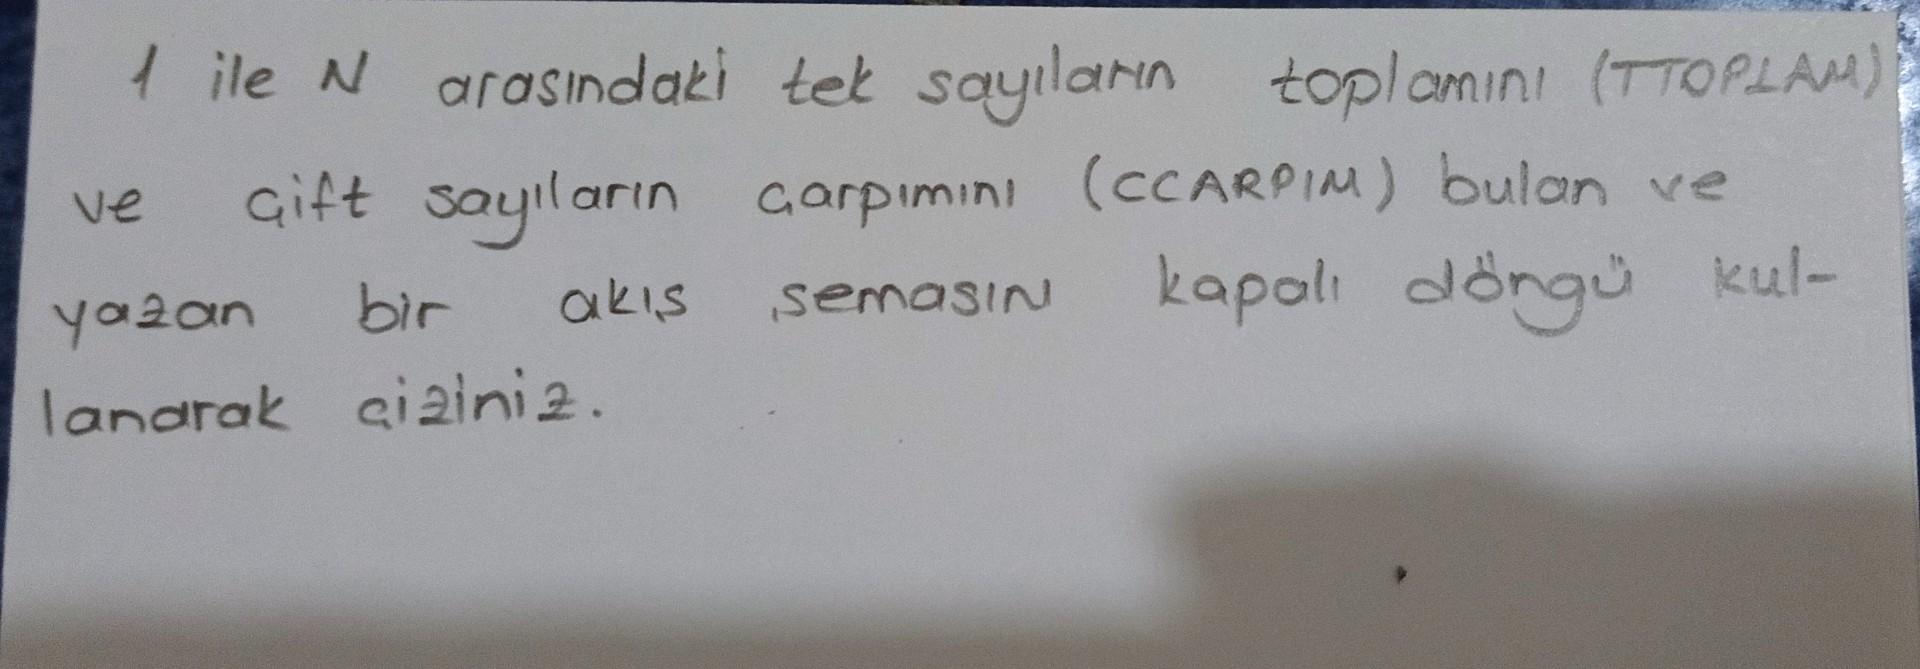 1 ile N arasındaki tek sayıların toplamını (TTOPLAM)
ve çift sayıların çarpımını (CCARPIM) bulan ve
yazan bir akış şemasını kapalı döngü kul-
lanarak çiziniz.